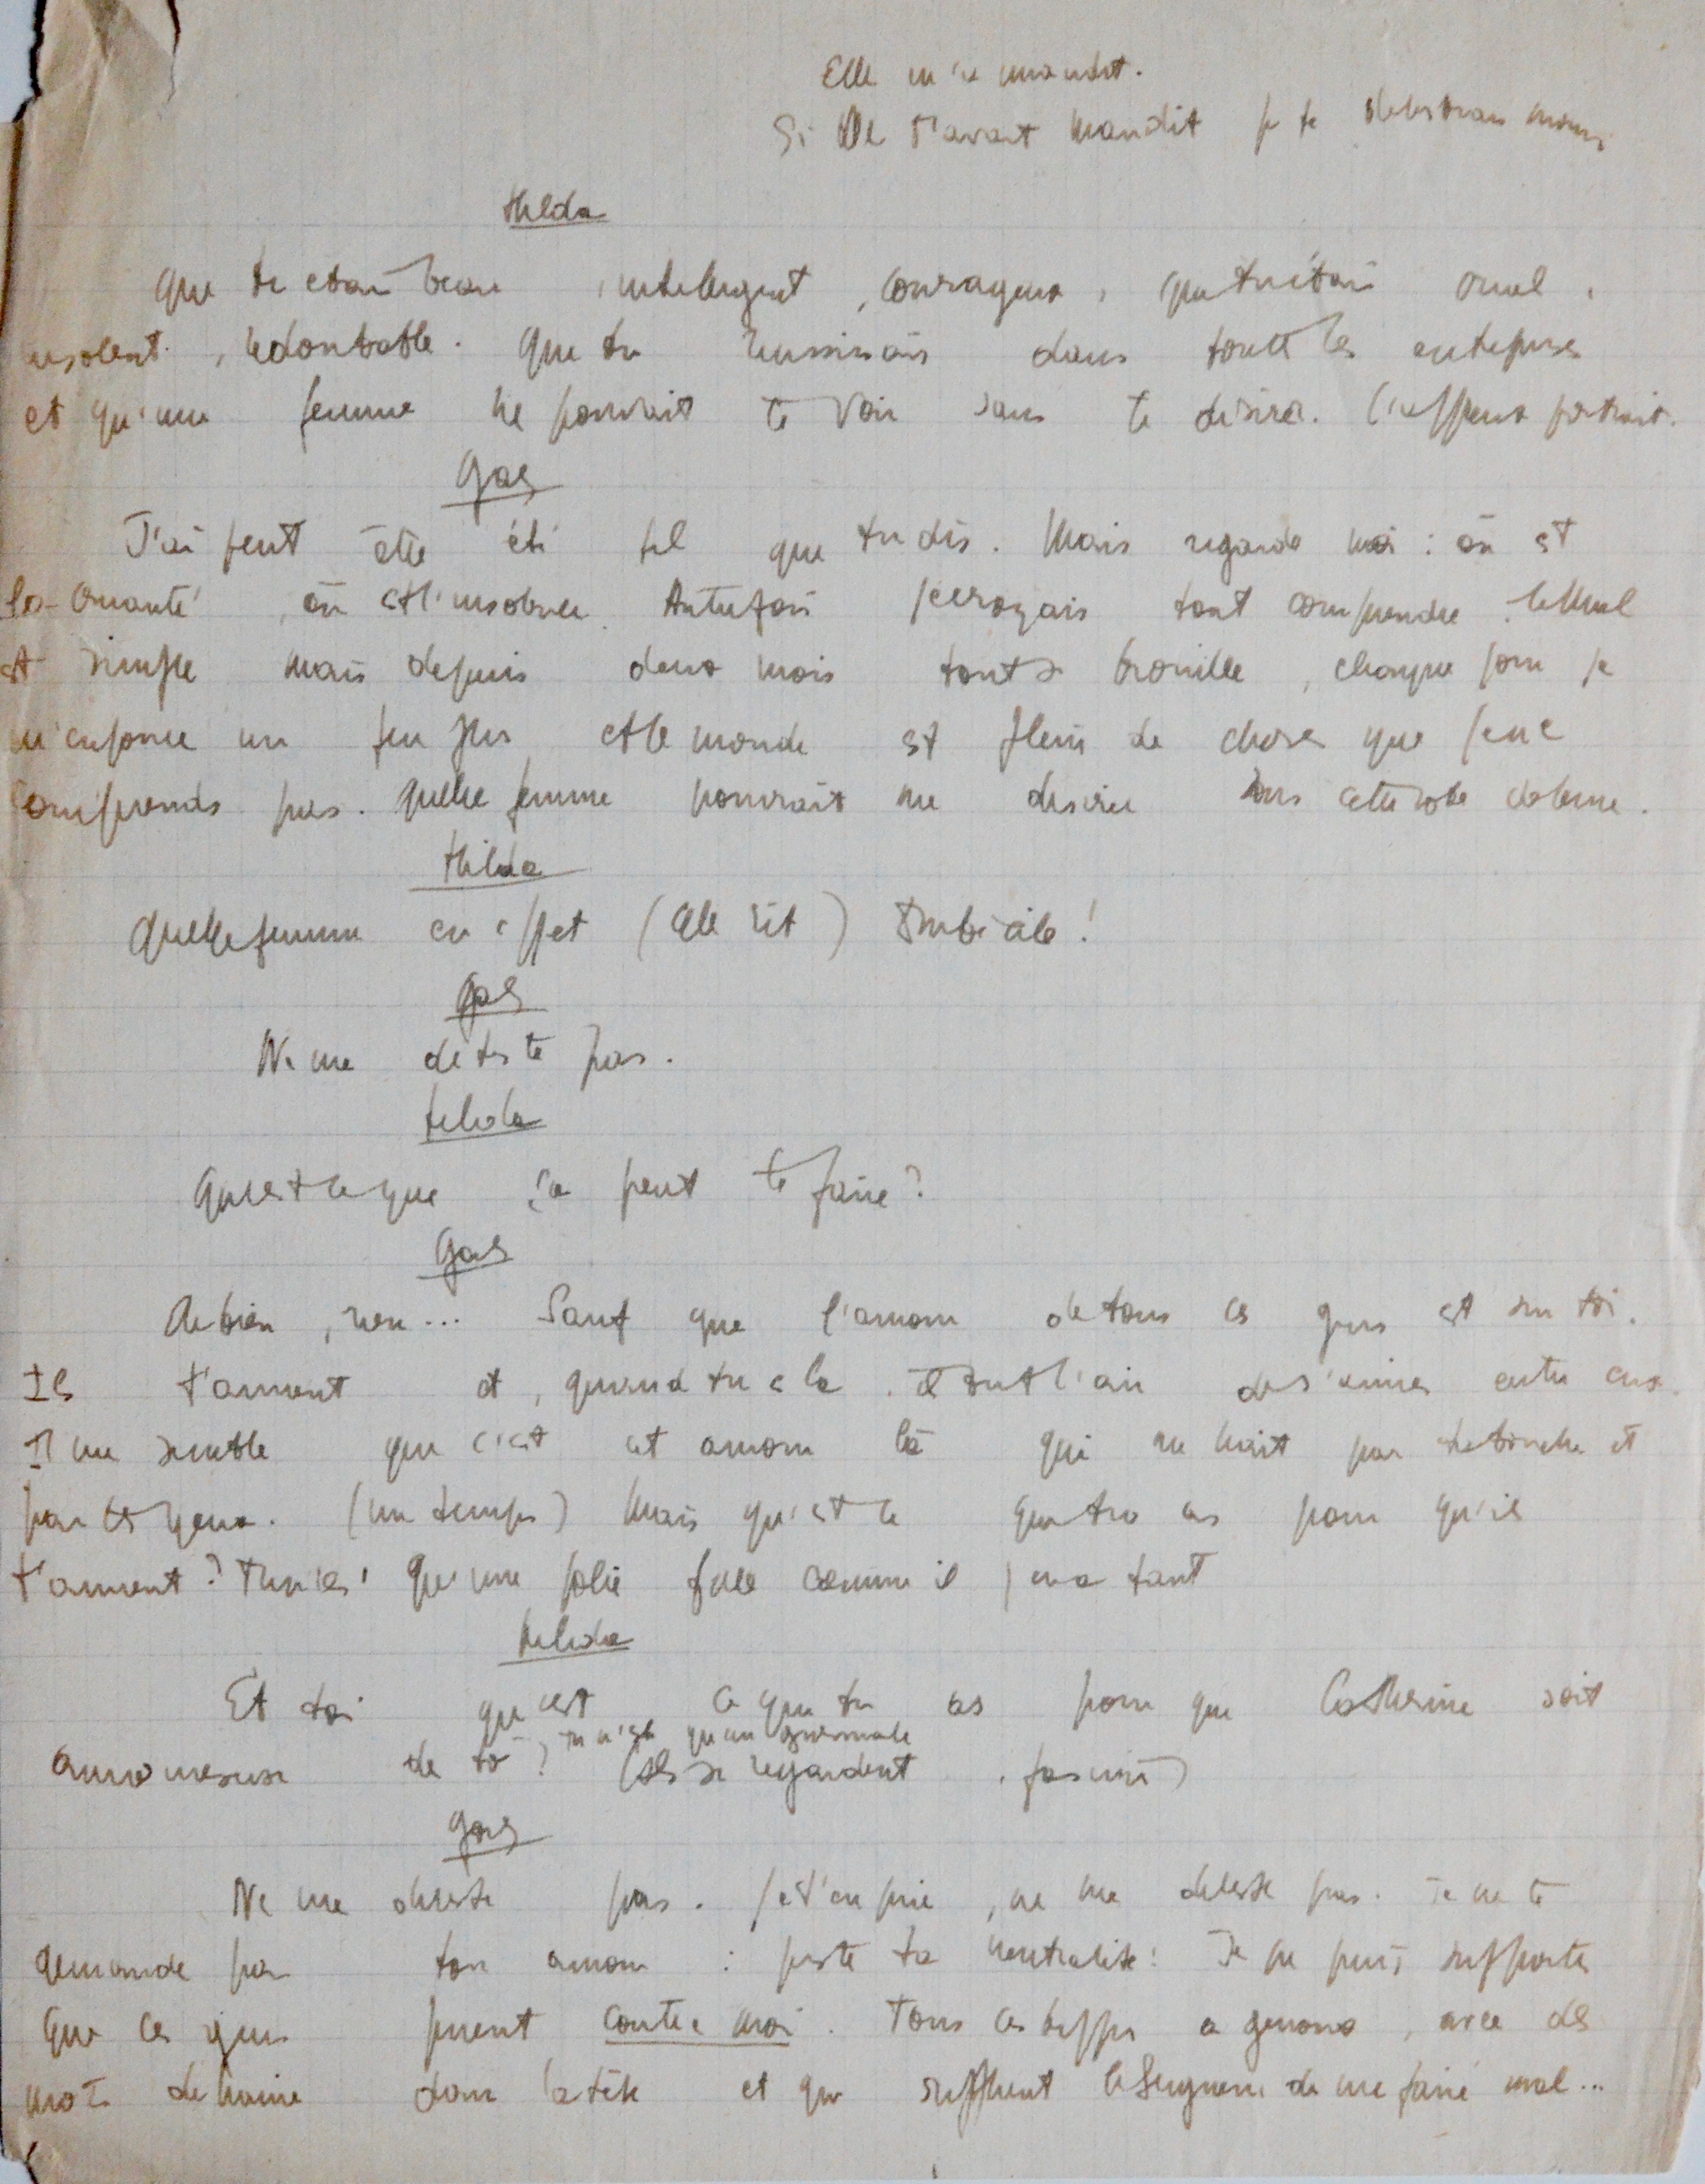 Elle m'a maudit.
Si elle t'avait maudit je te détesterais moins
Hilda
que tu étais beau intelligent, courageux, que tu étais cruel,
insolent, redoutable. que tu réussissais dans toutes les entreprises
et qu'une femme ne pouvait te voir sans te désirer. l'affreux portrait.
Gœtz
J'ai peut être été tel que tu dis. Mais regarde moi : où est
la cruauté, où est l'insolence. Autrefois je croyais tout comprendre. le Mal
est simple mais depuis deux mois tout se brouille, chaque jour je
m'enfonce un peu plus et le monde est plein de choses que je ne
comprends pas. quelle femme pourrait me désirer sous cette robe de bure.
Hilda
quelle femme en effet (elle rit) Imbécile !
Gœtz
Ne me déteste pas.
Hilda
qu'est ce que ça peut te faire ?
Gœtz
rien... Sauf que l'amour de tous ces gens est sur toi.
Ils t'aiment et, quand tu es là, ils ont l'air de s'aimer entre eux.
Il me semble que c'est cet amour là qui me hait par ta bouche et
par tes yeux. (un temps) Mais qu'est ce que tu as pour qu'ils
t'aiment ? Tu n'es qu'une jolie fille comme il y en a tant
Hilda
Et toi qu'est ce que tu as pour que Catherine soit
amoureuse de toi ? tu n'es qu'un
(Ils se regardent, fascinés)
Gœtz
Ne me déteste pas. Je t'en prie, ne me déteste pas. Je ne te
demande pas ton amour : juste ta neutralité ! Je ne puis supporter
que ces gens prient contre moi. Tous ces à genoux, avec des
mots de haine dans la tête et qui supplient le Seigneur de me faire mal...